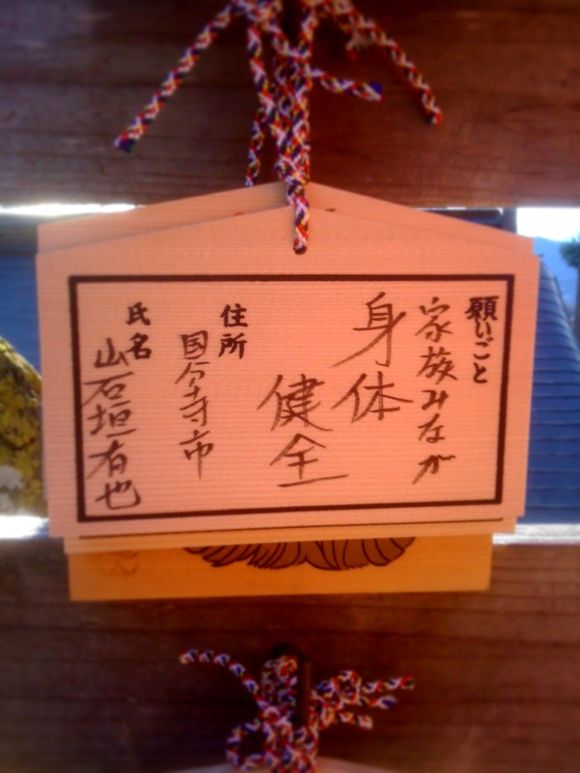 願いごと
家族みなが
身体
健全
住所
国分寺市
氏名
山石垣有也